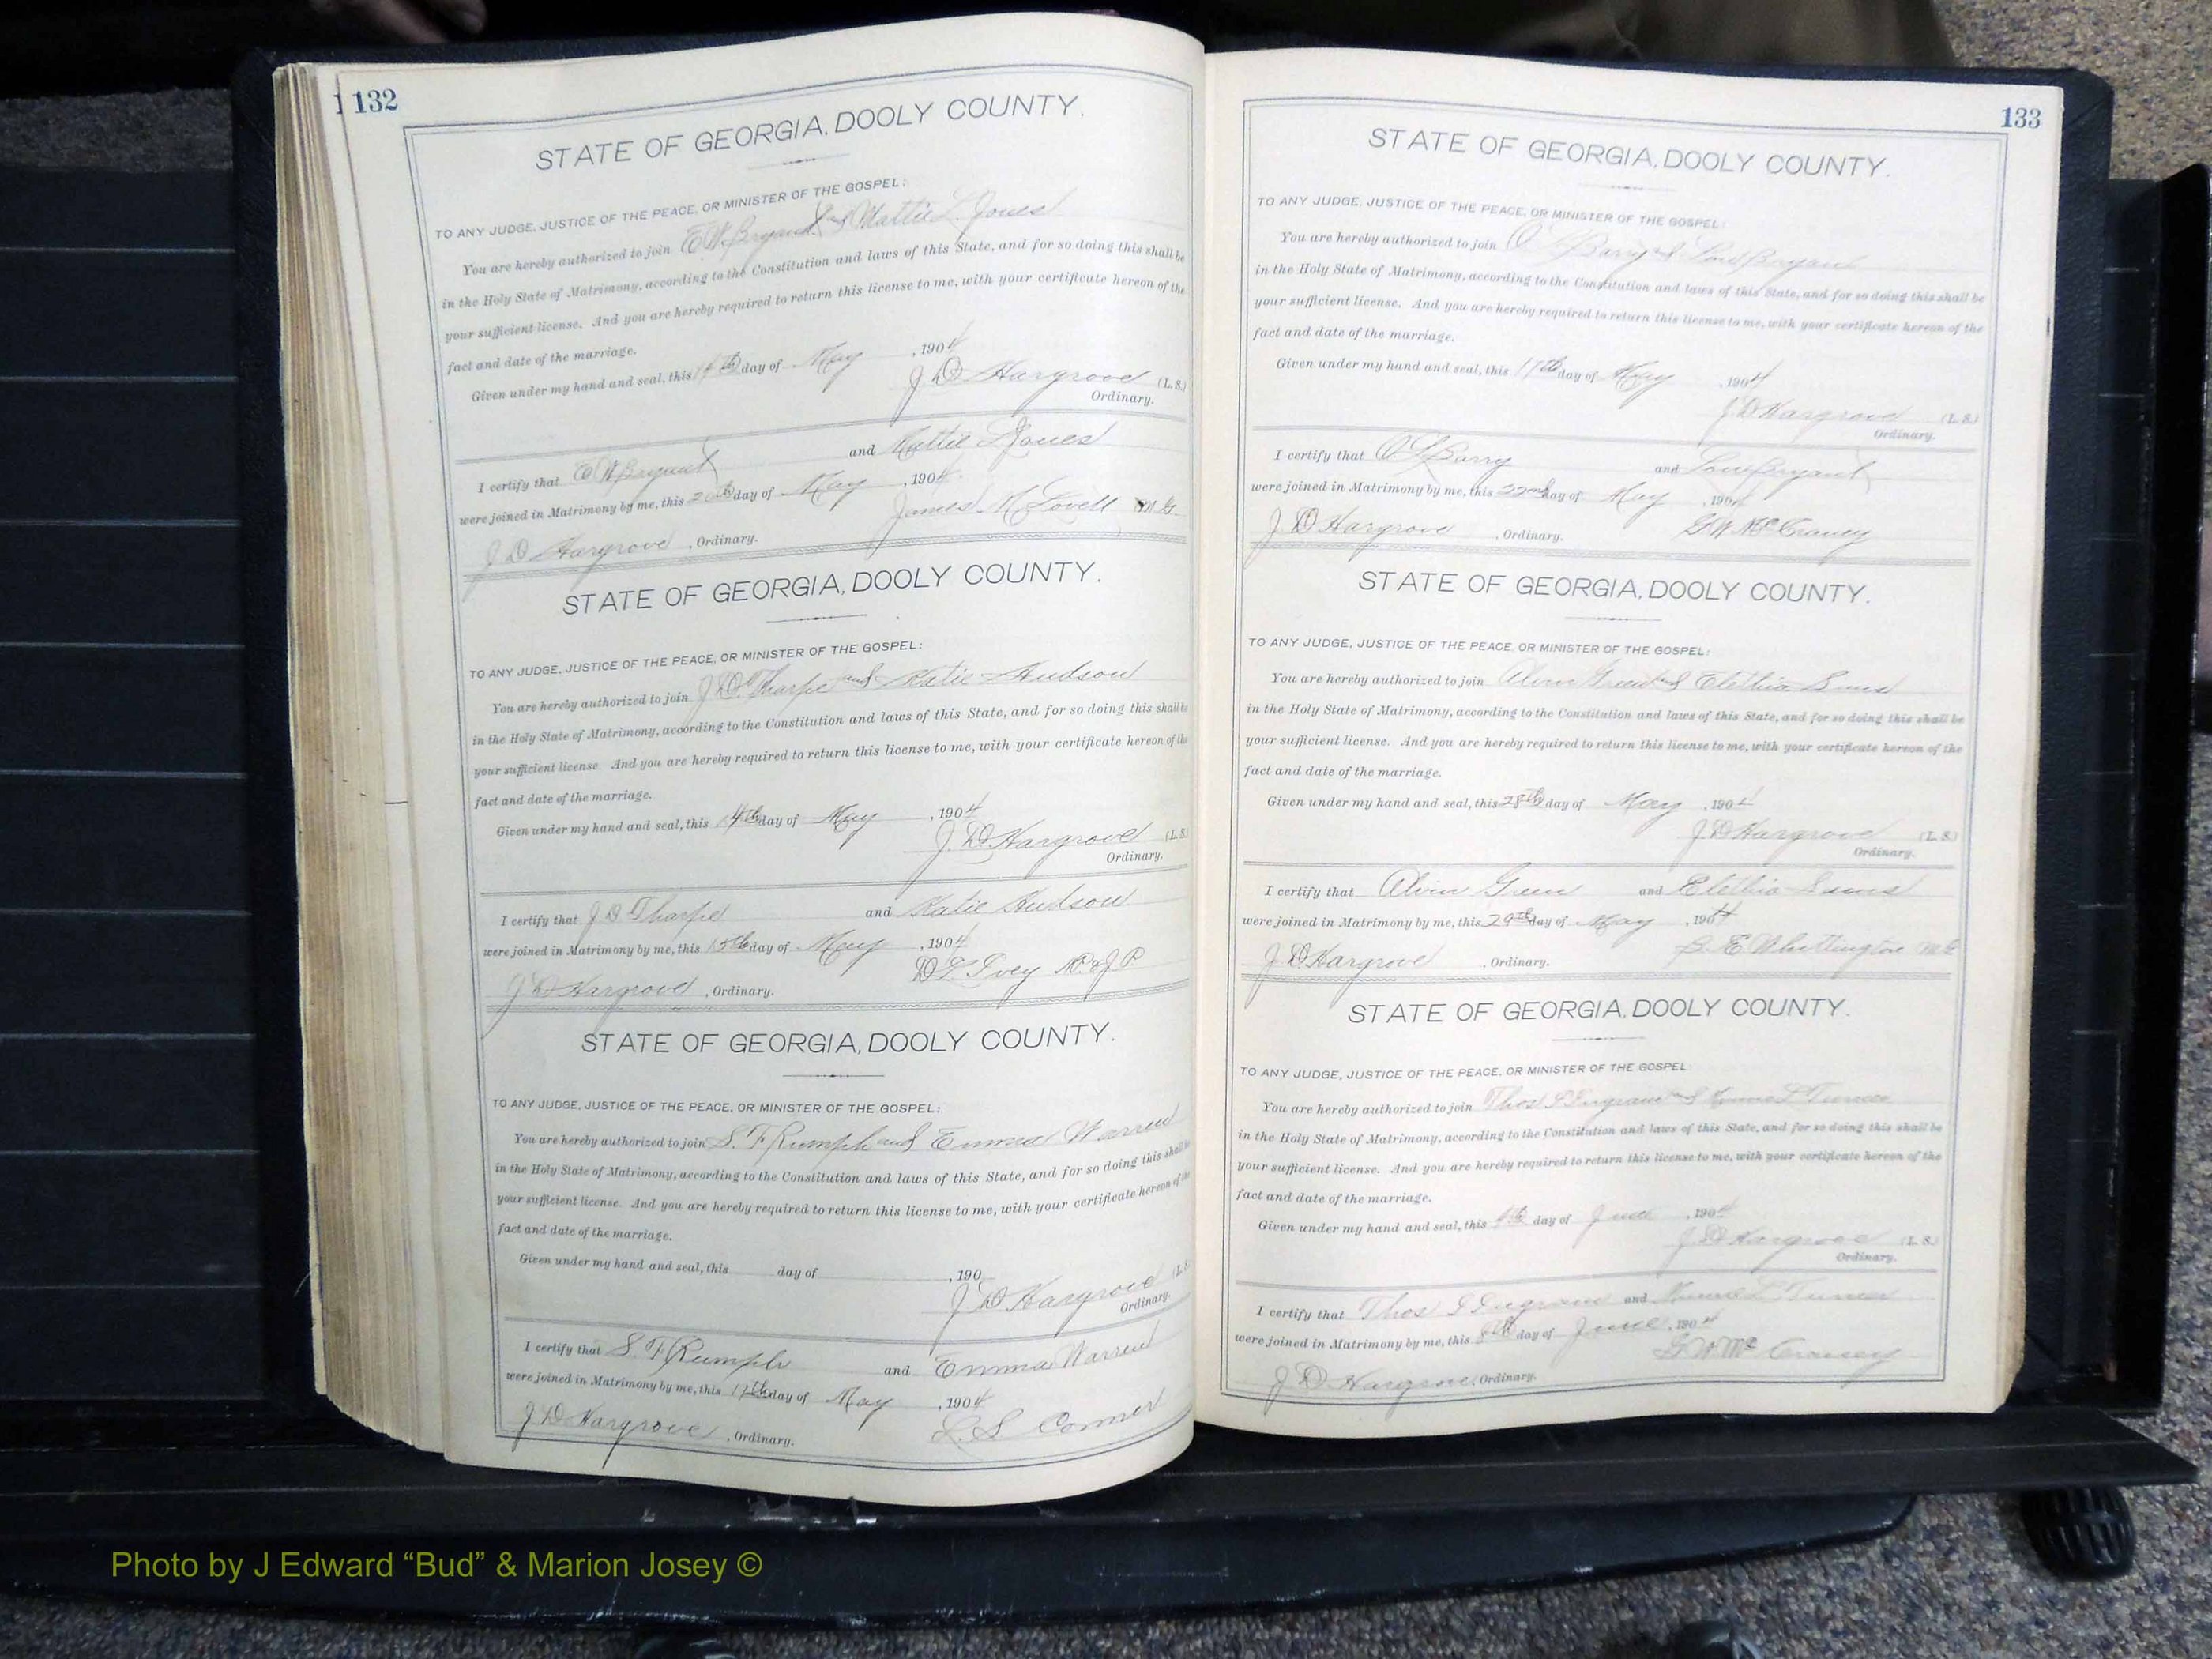 132
STATE OF GEORGIA, DOOLY COUNTY.
TO ANY JUDGE, JUSTICE OF THE PEACE, OR MINISTER OF THE GOSPEL:
You are hereby authorized to join E W Bryant and Mattie L. Jones
in the Holy State of Matrimony, according to the Constitution and laws of this State, and for so doing this shall be
your sufficient license. And you are hereby required to return this license to me, with your certificate hereon of the
fact and date of the marriage.
Given under my hand and seal, this day of May , 1904
J D Hargrove (L. S.)
Ordinary.
I certify that E W Bryant and Mattie L Jones
were joined in Matrimony by me, this 20th day of May , 1904
James M Lovell M G.
J D Hargrove , Ordinary.
STATE OF GEORGIA, DOOLY COUNTY.
TO ANY JUDGE, JUSTICE OF THE PEACE, OR MINISTER OF THE GOSPEL:
You are hereby authorized to join J D Tharpe and Katie Hudson
in the Holy State of Matrimony, according to the Constitution and laws of this State, and for so doing this shall be
your sufficient license. And you are hereby required to return this license to me, with your certificate hereon of the
fact and date of the marriage.
Given under my hand and seal, this 14th day of May , 1904
J. D Hargrove (L. S.)
Ordinary.
I certify that J D Tharpe and Katie Hudson
were joined in Matrimony by me, this 15th day of May , 1904
Ivey N.P. & J P
J D Hargrove , Ordinary.
STATE OF GEORGIA, DOOLY COUNTY.
TO ANY JUDGE, JUSTICE OF THE PEACE, OR MINISTER OF THE GOSPEL:
You are hereby authorized to join S. F Rumph and Emma Warren
in the Holy State of Matrimony, according to the Constitution and laws of this State, and for so doing this shall
your sufficient license. And you are hereby required to return this license to me, with your certificate hereon of the
fact and date of the marriage.
Given under my hand and seal, this day of , 190
J D Hargrove (L. S.
Ordinary.
I certify that S. F Rumph and Emma Warren
were joined in Matrimony by me, this day of May , 1904
L. S Conner
J D Hargrove , Ordinary.
133
STATE OF GEORGIA, DOOLY COUNTY.
TO ANY JUDGE, JUSTICE OF THE PEACE, OR MINISTER OF THE GOSPEL:
You are hereby authorized to join O Barry & Bryant
in the Holy State of Matrimony, according to the Constitution and laws of this State, and for so doing this shall be
your sufficient license. And you are hereby required to return this license to me, with your certificate hereon of the
fact and date of the marriage.
Given under my hand and seal, this 17th day of May , 1904
J D Hargrove (L. S.)
Ordinary.
I certify that O Barry and Bryant
were joined in Matrimony by me, this 22nd day of May , 1904
G W McCraney
J D Hargrove , Ordinary.
STATE OF GEORGIA, DOOLY COUNTY.
TO ANY JUDGE, JUSTICE OF THE PEACE, OR MINISTER OF THE GOSPEL:
You are hereby authorized to join Alvin Green and Elethia Sams
in the Holy State of Matrimony, according to the Constitution and laws of this State, and for so doing this shall be
your sufficient license. And you are hereby required to return this license to me, with your certificate hereon of the
fact and date of the marriage.
Given under my hand and seal, this 28th day of May , 1904
J D Hargrove (L. S.)
Ordinary.
I certify that Alvin Green and Elethia Sams
were joined in Matrimony by me, this 29th day of May , 1904
E Whittington M G
J D Hargrove , Ordinary.
STATE OF GEORGIA, DOOLY COUNTY.
TO ANY JUDGE, JUSTICE OF THE PEACE, OR MINISTER OF THE GOSPEL:
You are hereby authorized to join Thos Ingram and L Turner
in the Holy State of Matrimony, according to the Constitution and laws of this State, and for so doing this shall be
your sufficient license. And you are hereby required to return this license to me, with your certificate hereon of the
fact and date of the marriage.
Given under my hand and seal, this day of June , 1904
J D Hargrove (L. S.)
Ordinary.
I certify that Thos Ingram and L Turner
were joined in Matrimony by me, this 8th day of June , 1904
G W McCraney
J D Hargrove , Ordinary.
Photo by J Edward “Bud” & Marion Josey ©